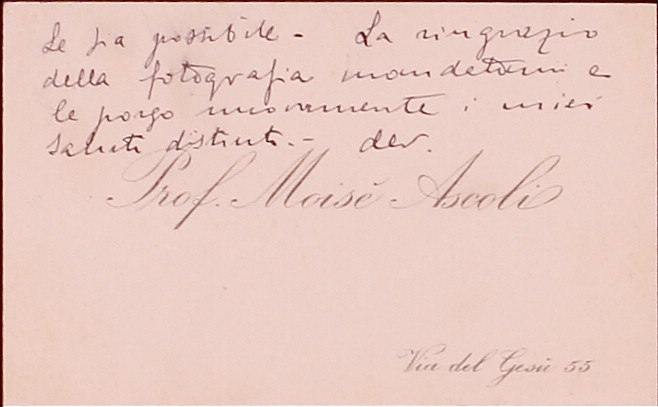 Le sia possibile - La ringrazio
della fotografia mandatami e
le porgo nuovamente i miei
saluti distinti. - dev.
Prof. Moisè Ascoli
Via del Gesù 55